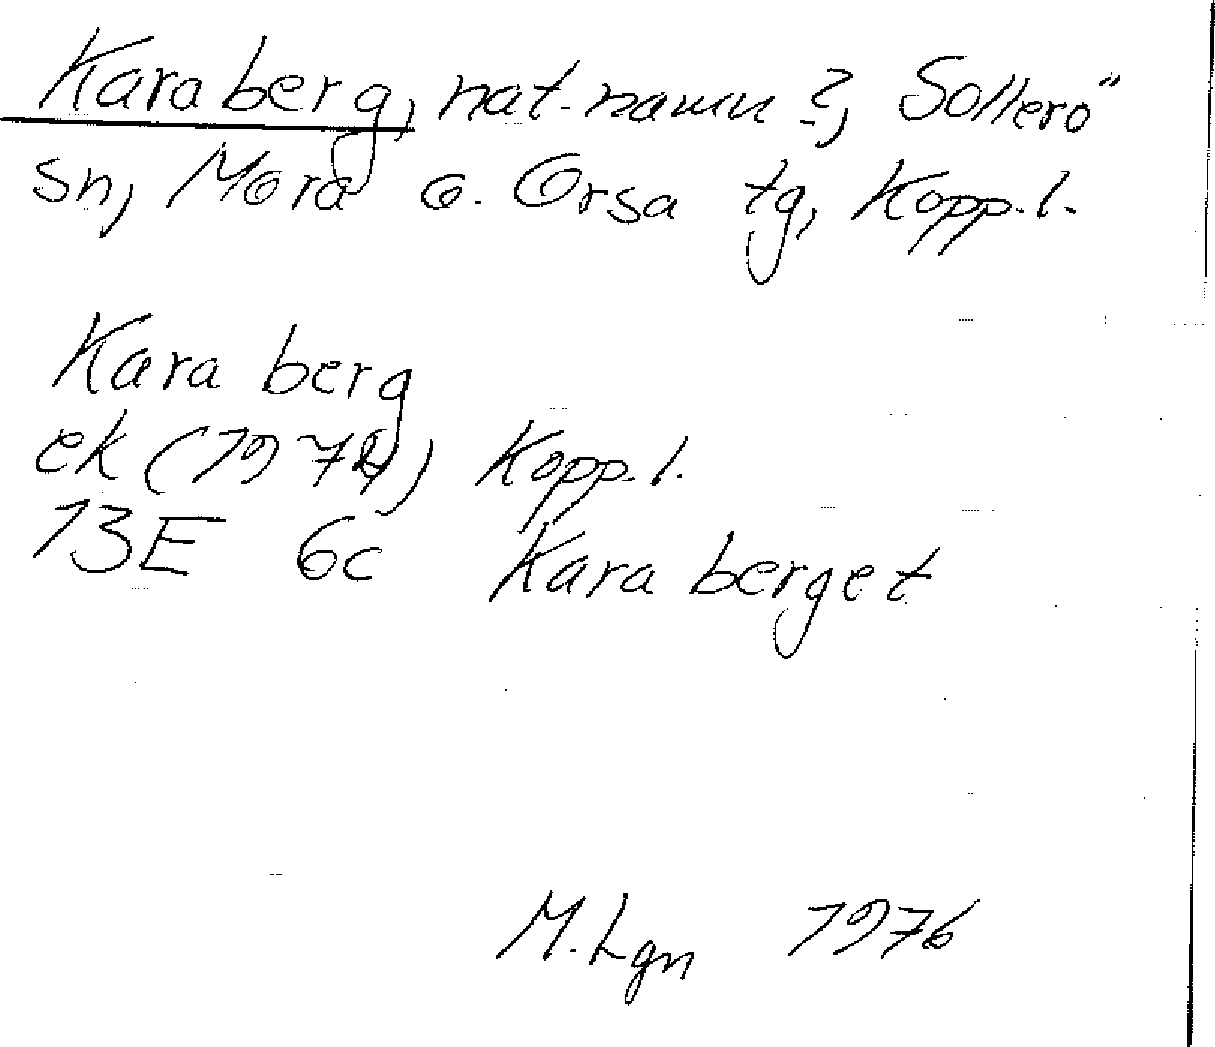 Karaberg, nat.namn ?, Sollerö
sn, Mora o. Orsa tg, Kopp.l.
Kara berg
ek (1974) Kopp.l.
13E 6c Kara berget
M.Lgn 1976